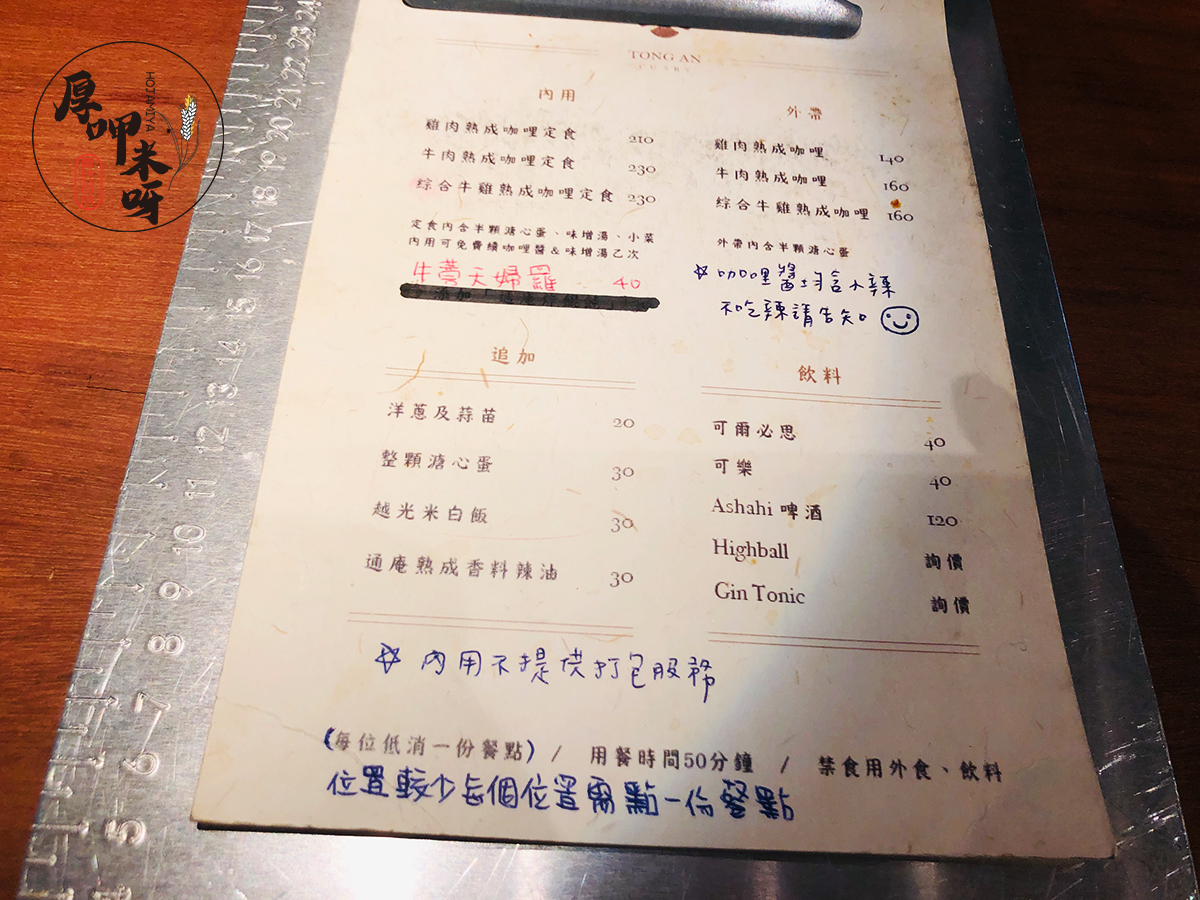 厚呷米呀
HOTAMIYA
TONG AN
CURRY
內用
雞肉熟成咖哩定食 210
牛肉熟成咖哩定食 230
綜合牛雞熟成咖哩定食 230
定食內含半顆溏心蛋、味增湯、小菜
內用可免費續咖哩醬&味增湯乙次
牛蒡天婦羅 40
外帶
雞肉熟成咖哩 140
牛肉熟成咖哩 160
綜合牛雞熟成咖哩 160
外帶內含半顆溏心蛋
☆咖哩醬均含小辣
不吃辣請告知
追加
洋蔥及蒜苗 20
整顆溏心蛋 30
越光米白飯 30
通庵熟成香料辣油 30
飲料
可爾必思 40
可樂 40
Ashahi 啤酒 120
Highball 詢價
Gin Tonic 詢價
☆ 內用不提供打包服務
(每位低消一份餐點) / 用餐時間50分鐘 / 禁食用外食、飲料
位置較少每個位置需點一份餐點
24
23
22
21
20
19
18
17
16
15
14
13
12
11
10
9
8
7
6
5